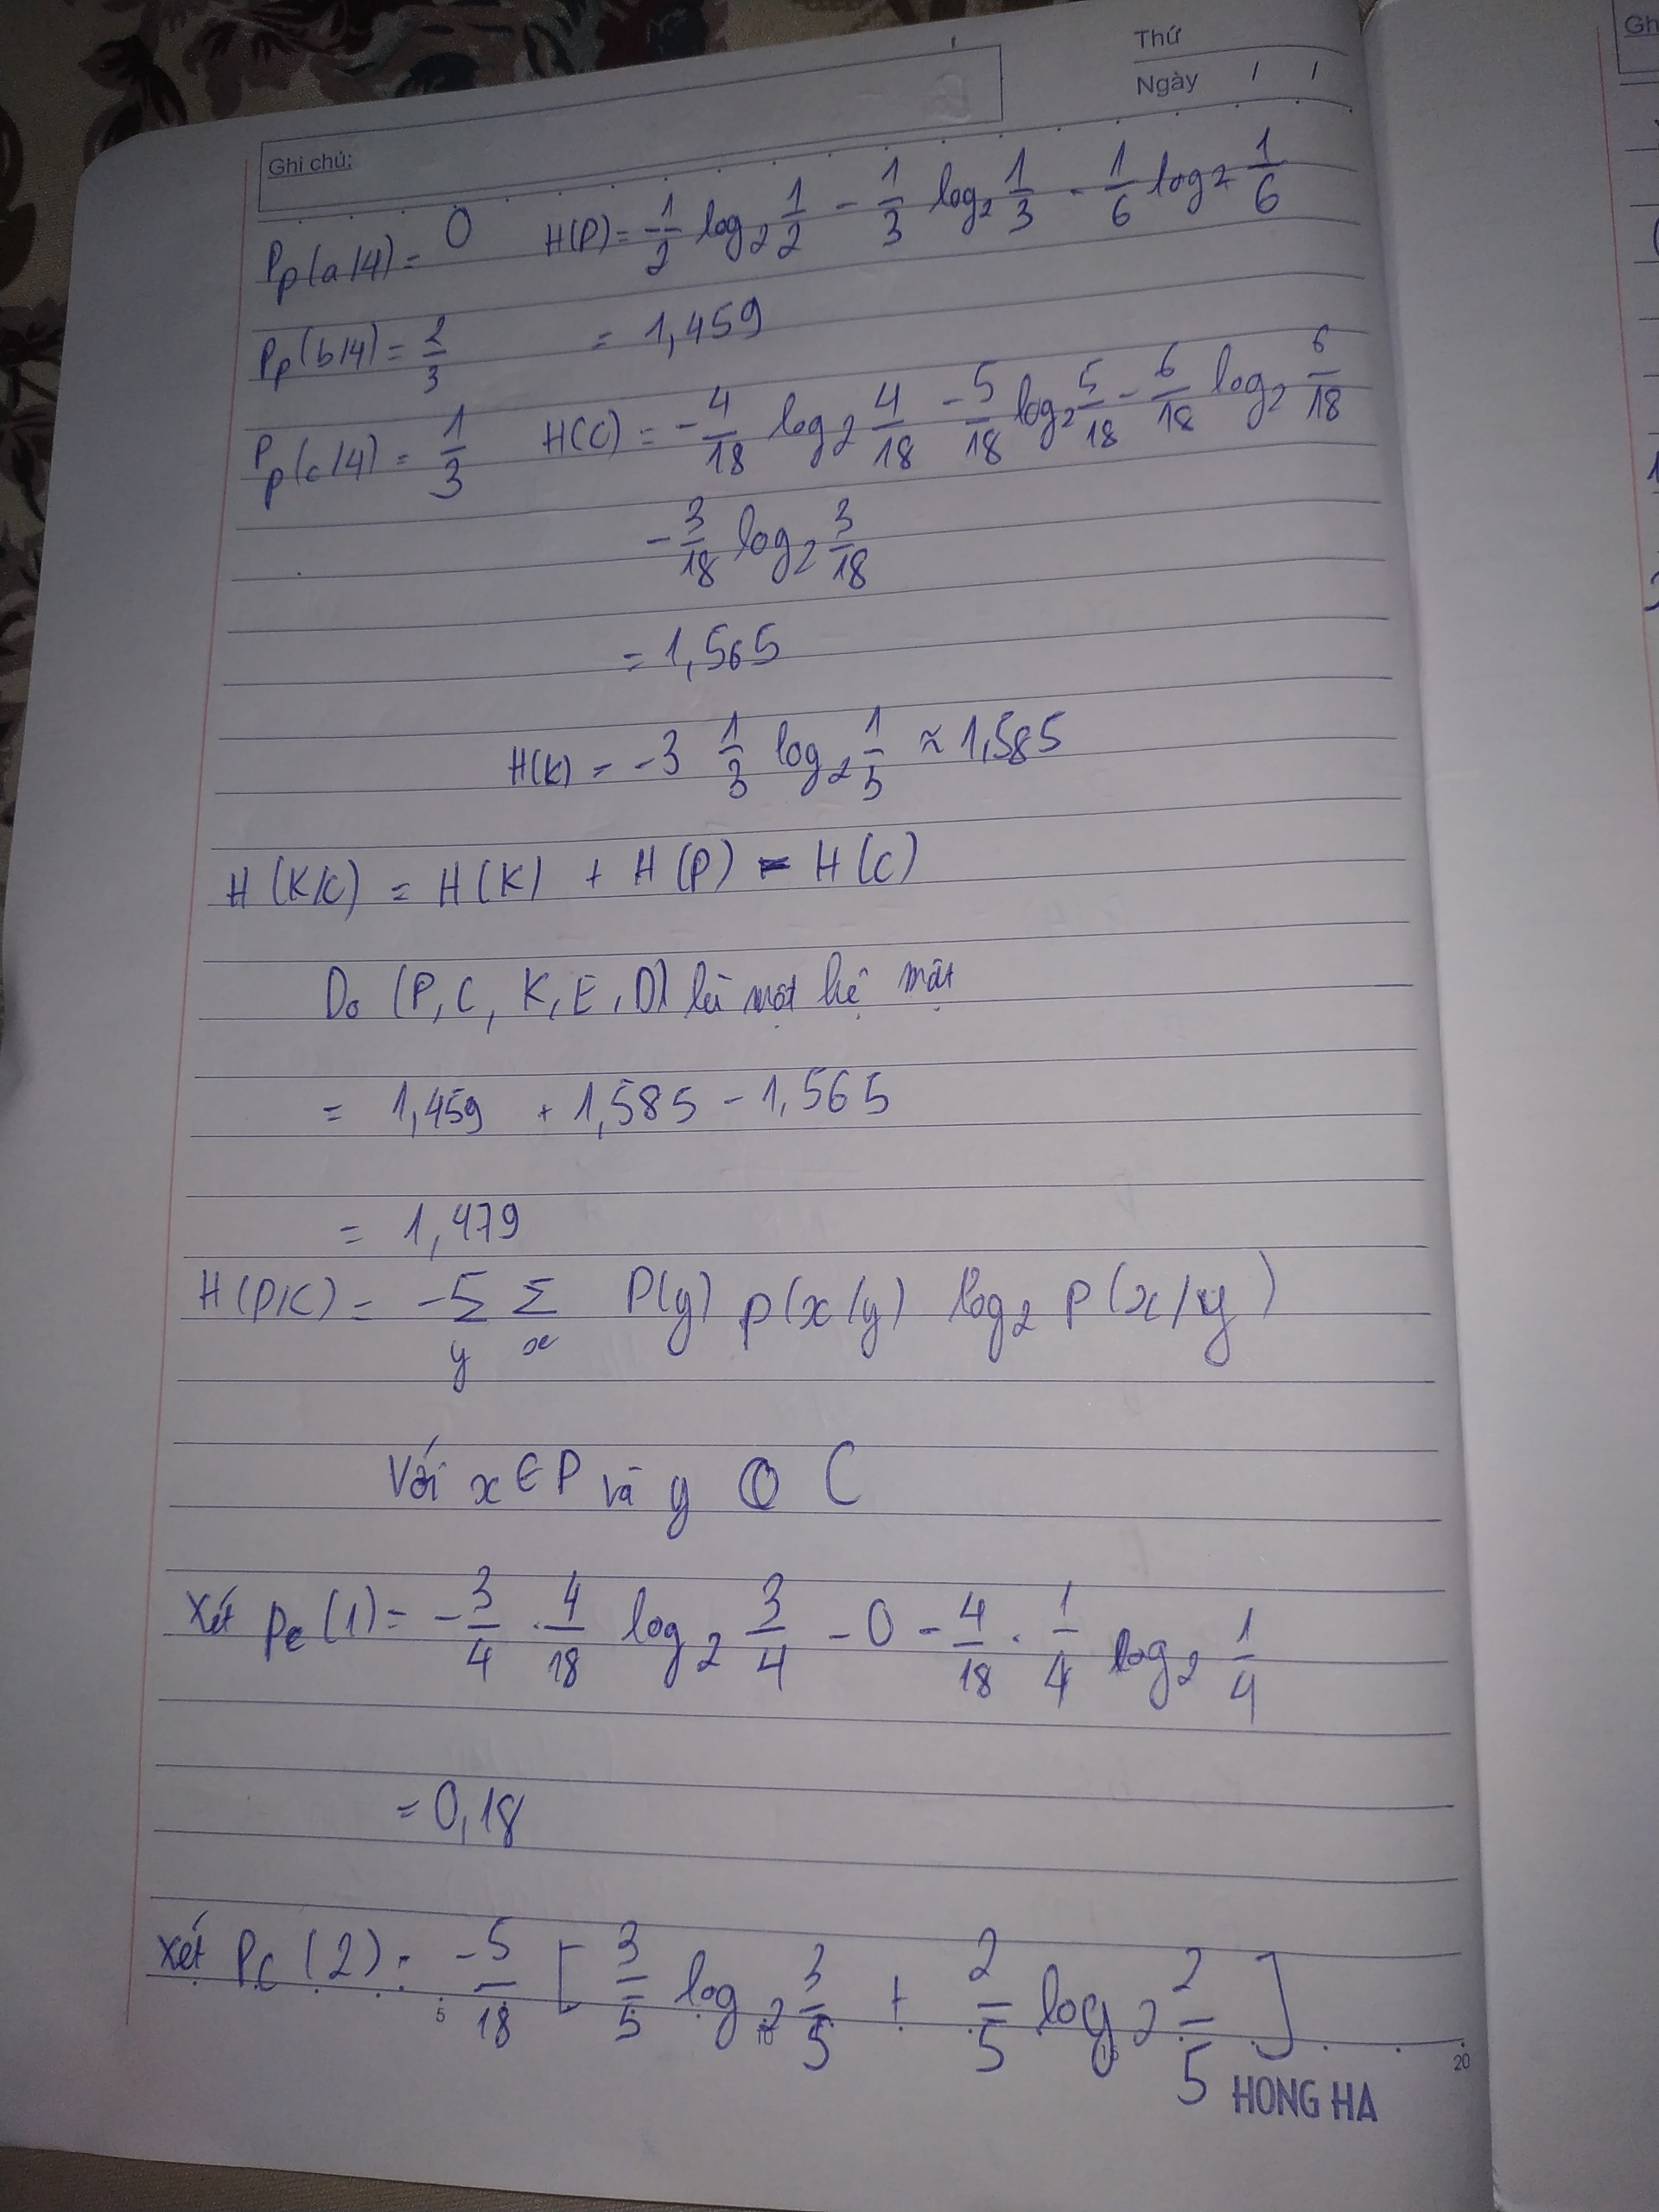 Thứ
Ngày / /
Ghi chú:
Pp(a/4) = 0 H(P) = -1/2 log2 1/2 - 1/3 log2 1/3 - 1/6 log2 1/6
Pp(b/4) = 2/3 = 1,459
Pp(c/4) = 1/3 H(C) = -4/18 log2 4/18 - 5/18 log2 5/18 - 6/18 log2 6/18
- 3/18 log2 3/18
= 1,565
H(K) = -3 1/3 log2 1/3 ≈ 1,585
H(K/C) = H(K) + H(P) - H(C)
Do (P, C, K, E, D) là một hệ mật
= 1,459 + 1,585 - 1,565
= 1,479
H(P/C) = -Σy Σx P(y) p(x/y) log2 P(x/y)
Với x ∈ P và y C
Xét Pc(1) = -3/4 . 4/18 log2 3/4 - 0 - 4/18 . 1/4 log2 1/4
= 0,18
Xét Pc(2) : -5/18 [ 3/5 log2 3/5 + 2/5 log2 2/5 ]
5 10 15 20
HONG HA
Gh